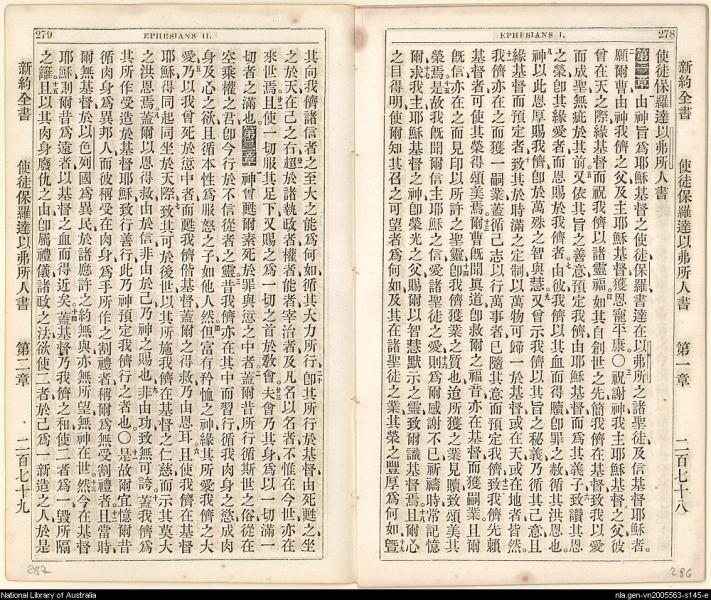 278
EPHESIANS I.
新約全書 使徒保羅達以弗所人書 第一章 二百七十八
使徒保羅達以弗所人書
第一章 由神旨爲耶穌基督之使徒保羅書達在以弗所之諸聖徒及信基督耶穌者
願爾曹由神我儕之父及主耶穌基督獲恩寵平康○祝謝神我主耶穌基督之父彼
曾在天之際緣基督而祝我儕以諸靈福如其自創世之先簡我儕在基督致我以愛
而成聖無疵於其前又依其旨之善意預定我儕由耶穌基督而爲其義子致讚其恩
之榮卽其緣愛者而恩賜於我儕者由彼我儕以其血而得贖卽罪之赦循其洪恩也
神以此恩厚賜我儕卽於萬殊之智與慧又曾示我儕以其旨之秘義乃循其己意且
緣基督而預定者致其於時滿之定制以萬物可歸一於基督或在天或在地者皆然
我儕亦在之而獲一嗣業蓋循己志以行萬事者已隨其意而預定我儕致我儕先賴
基督者可使其榮得頌美焉爾曹旣聞眞道卽救爾之福音亦在基督而獲嗣業且爾
旣信亦在之而見印以所許之聖靈卽我儕獲業之質也迨所獲之業見贖致頌美其
榮焉是故我旣聞爾信主耶穌之信愛諸聖徒之愛則爲爾感謝不已祈禱時常記憶
爾求我主耶穌基督之神卽榮光之父賜爾以智慧默示之靈致爾識基督焉且爾心
之目得明使爾知其召之可望者爲何如及其在諸聖徒之業其榮之豐厚爲何如曁
286
279
EPHESIANS II.
其向我儕諸信者之至大之能爲何如循其大力所行卽其所行於基督由死甦之坐
之於天在己之右超於諸執政者權者能者宰治者及凡名以名者不惟在今世亦在
來世焉且使一切服其足下又賜之爲一切之首於敎會夫會乃其身爲以一切滿一
切者之滿也第二章 神曾甦爾素死於罪與愆之中者蓋爾昔所行循斯世之俗從在
空乘權之君卽今行於不信從者之靈昔我儕亦在其中而習行循我肉身之慾成肉
身及心之欲且循本性爲服怒之子如他人然但富有矜恤之神緣其所愛我儕之大
愛乃以我曾死於愆中者而甦我儕偕基督蓋爾之得救乃由恩耳且使我儕在基督
耶穌得同起同坐於天際致其可於後世以其所施我儕在基督之仁慈而示其莫大
之洪恩焉蓋爾以恩得救由於信非由於己乃神之賜也非由功致無可誇蓋我儕爲
其所作受造於基督耶穌致行善行此乃神預定我儕行之者也○是故爾宜憶爾昔
循肉身爲異邦人而彼稱受在肉身爲手所作之割禮者稱爾爲無受割禮者且當時
爾無基督於以色列國爲異民於諸應許之約無與亦無所望無神在世然今在基督
耶穌則爾昔爲遠者以基督之血而得近矣蓋基督乃我儕之和使二者爲一毀所隔
之籬且以其肉身廢仇之由卽屬禮儀諸政之法欲使二者於己爲一新造之人於是
新約全書 使徒保羅達以弗所人書 第二章 二百七十九
287
National Library of Australia
nla.gen-vn2005563-s145-e